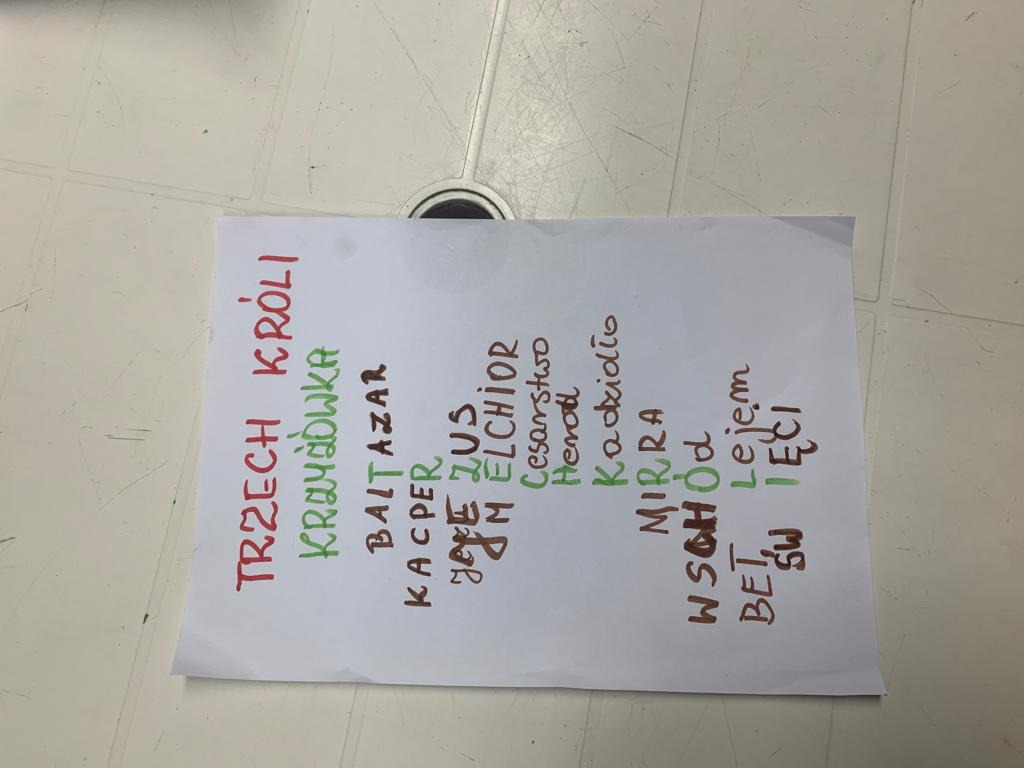 TRZECH KRÓLI
KRZYŻÓWKA
BALTAZAR
KACPER
ZUS
MELCHIOR
Cesarstwo
Herod
Kadzidło
MIRRA
WSCHÓd
BETLejem
ŚWIĘCI